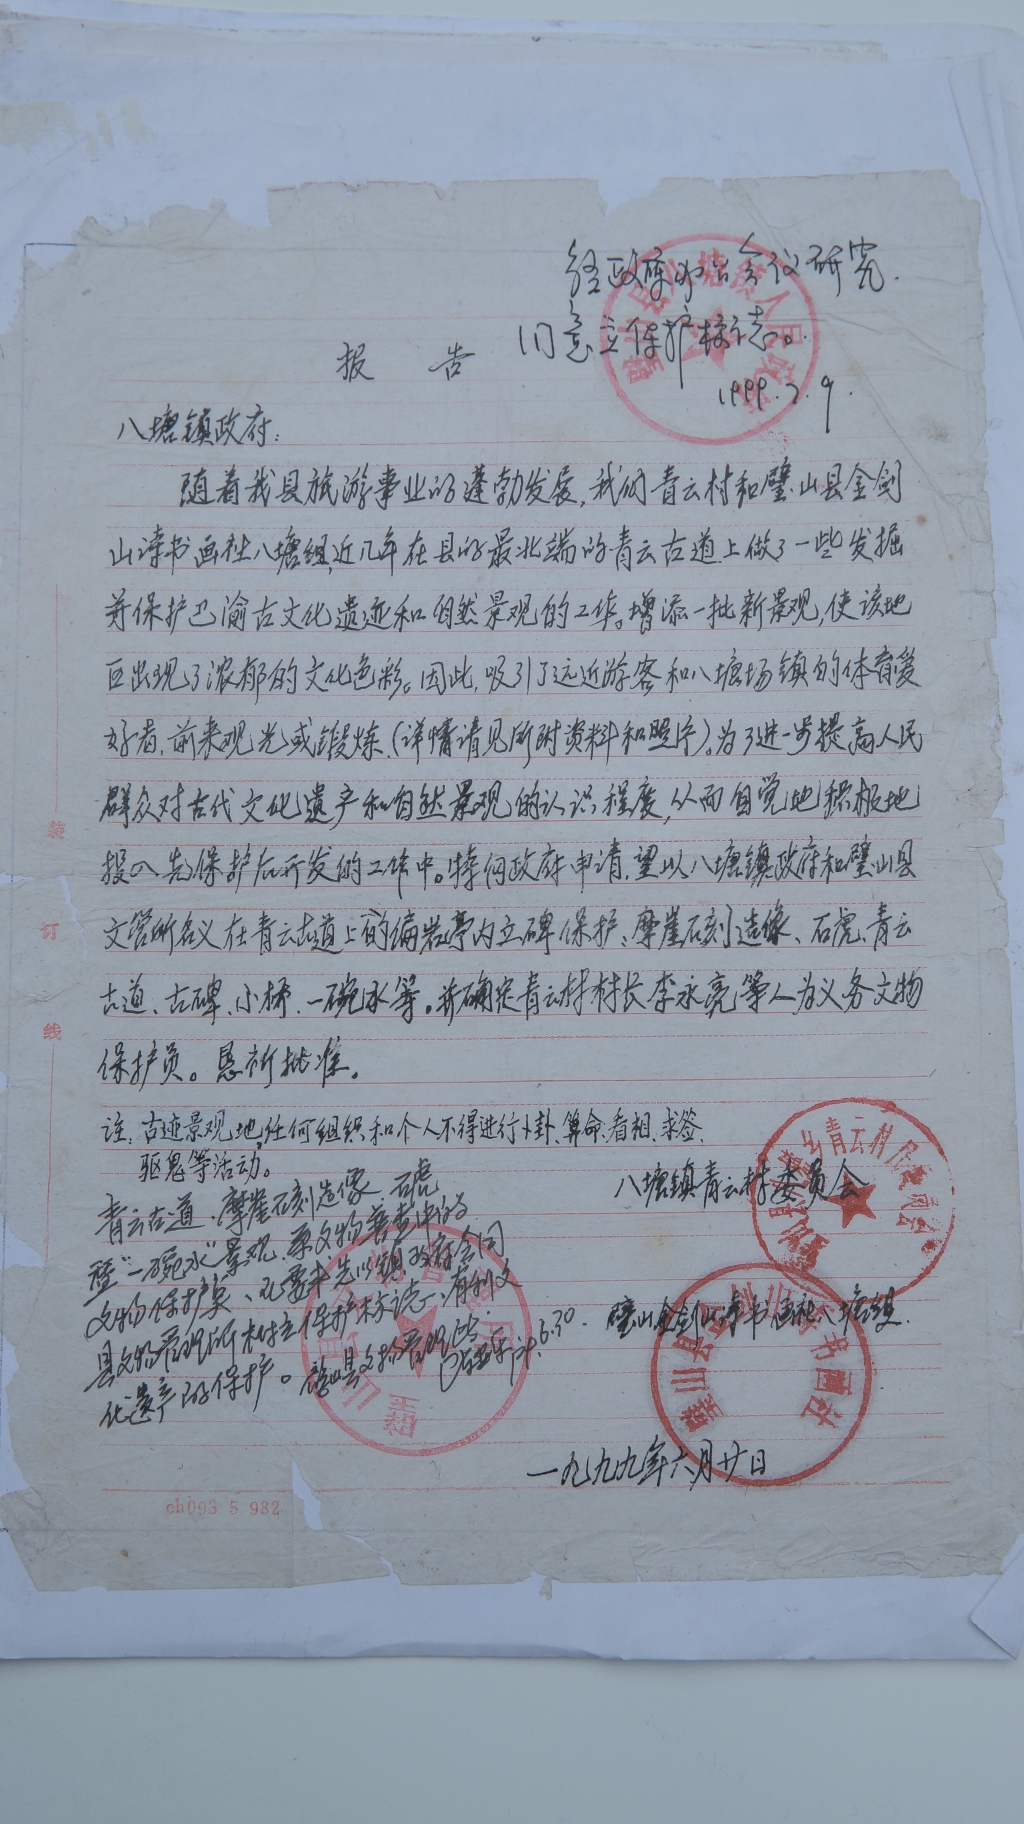 经政府办公会议研究.
同意立保护标志。
1999.7.9.
报 告
八塘镇政府:
随着我县旅游事业的蓬勃发展,我们青云村和璧山县金剑
山诗书画社八塘组,近几年在县的最北端的青云古道上做了一些发掘
并保护巴渝古文化遗迹和自然景观的工作。增添一批新景观,使该地
区出现了浓郁的文化色彩。因此,吸引了远近游客和八塘场镇的体育爱
好者,前来观光或锻炼.(详情请见所附资料和照片)。为了进一步提高人民
群众对古代文化遗产和自然景观的认识程度,从而自觉地积极地
投入先保护后开发的工作中。特向政府申请,望以八塘镇政府和璧山县
文管所名义在青云古道上的偏岩亭内立碑保护:摩崖石刻造像、石虎、青云
古道、古碑、小桥、一碗水等。并确定青云村村长李永亮等人为义务文物
保护员。恳祈批准。
注:古迹景观地,任何组织和个人不得进行卜卦、算命、看相、求签、
驱鬼等活动。
八塘镇青云村委员会
青云古道、摩崖石刻造像、石虎
暨“一碗水”景观,系文物普查中的
文物保护点、先以镇政府会同
县文物管理所树立保护标志,有利文
化遗产的保护。璧山县文物管理所
99.6.30.
璧山金剑山诗书画社八塘组.
一九九九年六月廿日
装
订
线
ch093 5 932